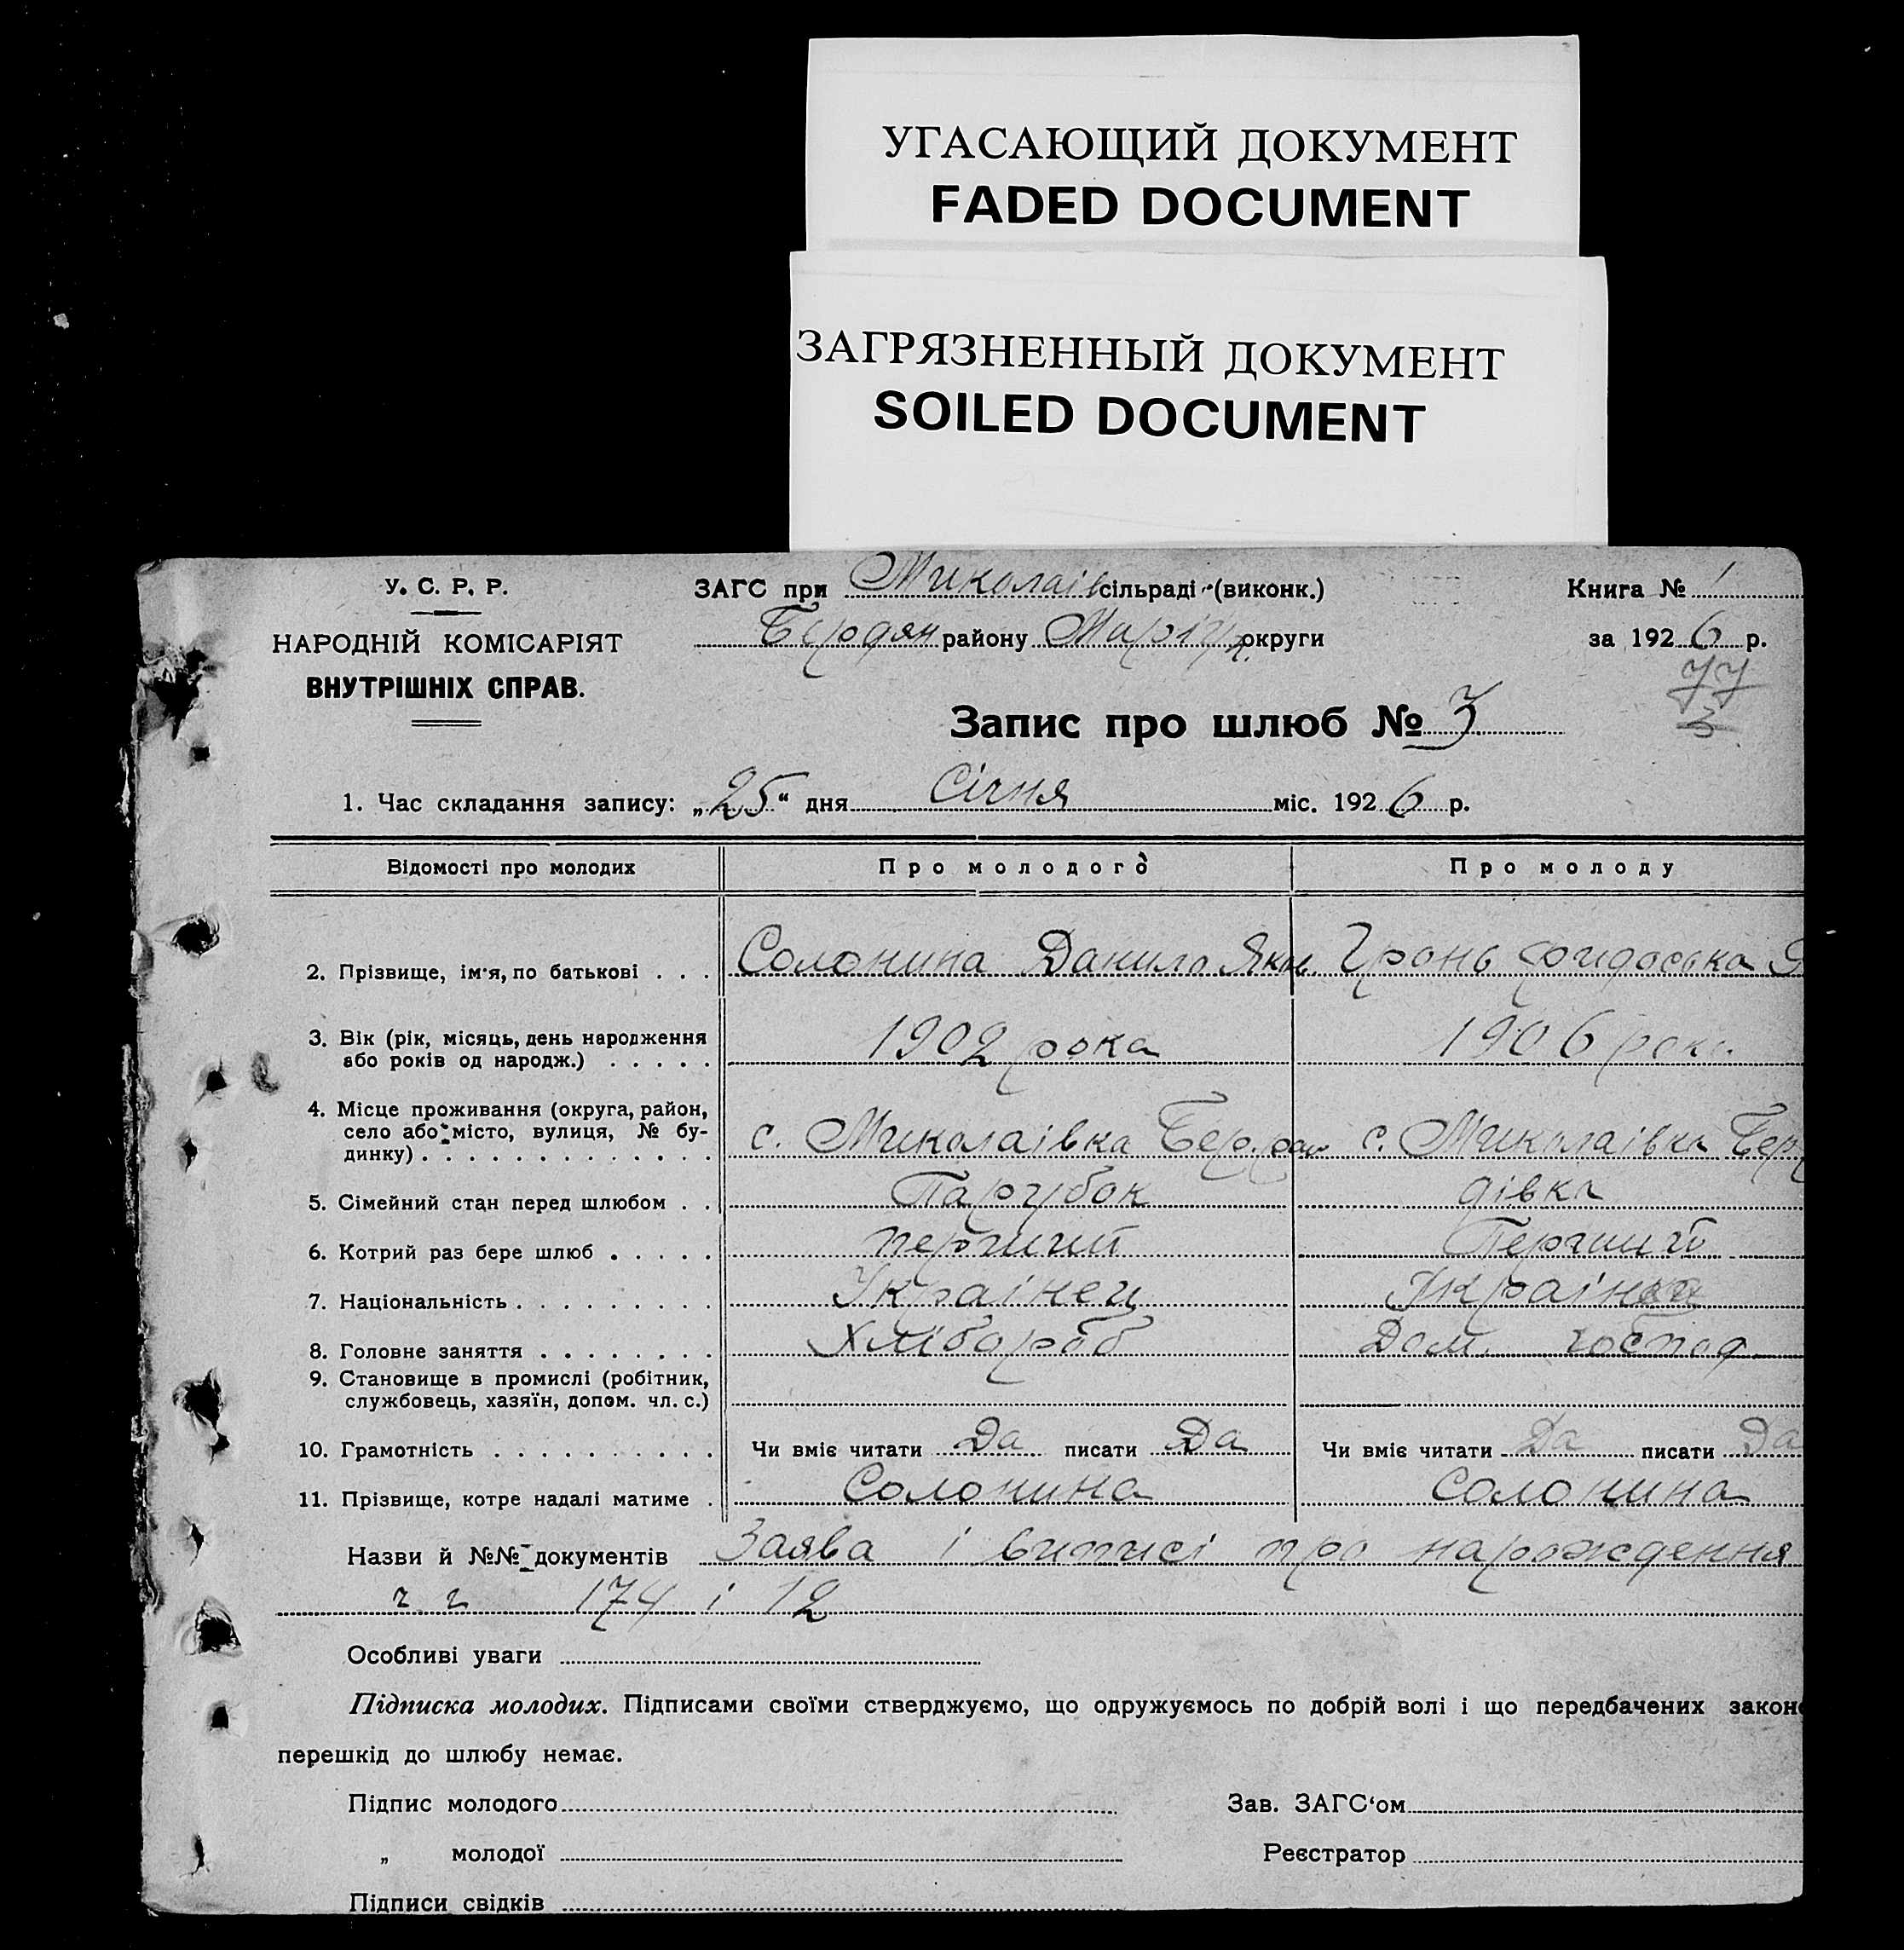 УГАСАЮЩИЙ ДОКУМЕНТ
FADED DOCUMENT
ЗАГРЯЗНЕННЫЙ ДОКУМЕНТ
SOILED DOCUMENT
У. С. Р. Р.
НАРОДНІЙ КОМІСАРІЯТ
ВНУТРІШНІХ СПРАВ.
ЗАГС при Миколаів сільраді (виконк.)
Бердян району Маріуп. округи
Книга № 1
за 1926 р.
77
3
Запис про шлюб № 3
1. Час складання запису: „25" дня Січня міс. 1926 р.
Відомості про молодих Про молодого Про молоду
2. Прізвище, ім'я, по батькові . . . Солонина Данило Яким. Гронь
3. Вік (рік, місяць, день народження
або років од народж.) . . . . . 1902 рока 1906 рока
4. Місце проживання (округа, район,
село або місто, вулиця, № бу-
динку) . . . . . . . . . . . . . с. Миколаівка Бер. рай с. Миколаівка Бер.
5. Сімейний стан перед шлюбом . . Парубок дівка
6. Котрий раз бере шлюб . . . . . перший Перший
7. Національність . . . . . . . . . Украінец Украінка
8. Головне заняття . . . . . . . . Хлібороб Дом. господ
9. Становище в промислі (робітник,
службовець, хазяїн, допом. чл. с.)
10. Грамотність . . . . . . . . . . Чи вміє читати Да писати Да Чи вміє читати Да писати Да
11. Прізвище, котре надалі матиме . Солонина Солонина
Назви й №№ документів Заява і виписі про нарождення
г. г. 174 і 12
Особливі уваги
Підписка молодих. Підписами своїми стверджуємо, що одружуємось по добрій волі і що передбачених законо
перешкід до шлюбу немає.
Підпис молодого Зав. ЗАГС'ом
„ молодої Реєстратор
Підписи свідків